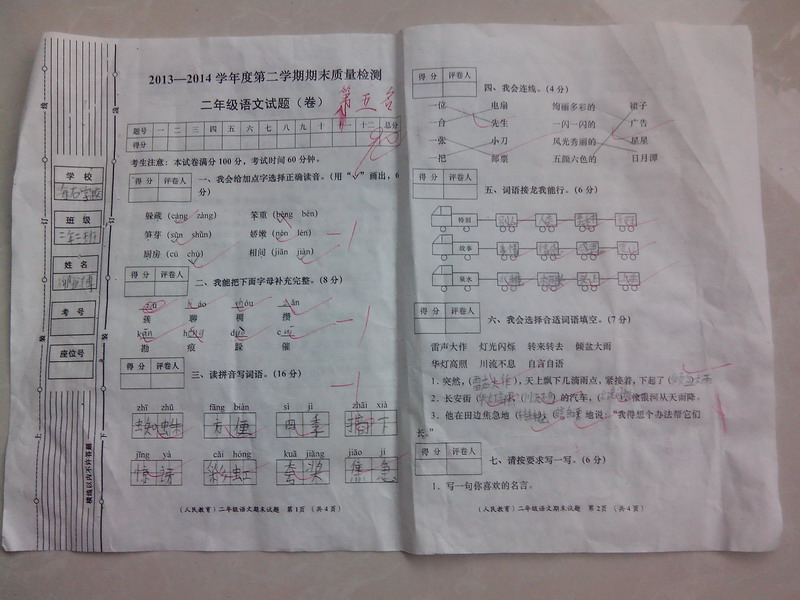 2013—2014 学年度第二学期期末质量检测
二年级语文试题（卷）
第五名
题号 一 二 三 四 五 六 七 八 九 十 十一 十二 总分
得分
考生注意：本试卷满分 100 分，考试时间 60 分钟。
学校
班级
姓名
考号
座位号
横线以内不许答题
得分 评卷人
一、我会给加点字选择正确读音。（用“√”画出，6
分）
躲藏（cáng zàng） 笨重（bèng bèn）
笋芽（sǔn shǔn） 娇嫩（nèn lèn）
厨房（cú chú） 相间（jiān jiàn）
得分 评卷人
二、我能把下面字母补充完整。（8分）
簇 聊 稠 攒
勘 痕 跺 催
得分 评卷人
三、读拼音写词语。（16 分）
zhī zhū fāng biàn sì jì zhāi xià
蜘蛛 方便 四季 摘下
jīng yà cǎi hóng kuā jiǎng jiāo jí
惊讶 彩虹 夸奖 焦急
（人民教育）二年级语文期末试题 第 1 页 （共 4 页）
得分 评卷人
四、我会连线。（4 分）
一位 电扇 绚丽多彩的 裙子
一台 先生 一闪一闪的 广告
一张 小刀 风光秀丽的 星星
一把 邮票 五颜六色的 日月潭
得分 评卷人
五、词语接龙我能行。（6 分）
特别
故事
泉水
得分 评卷人
六、我会选择合适词语填空。（7 分）
雷声大作 灯光闪烁 转来转去 倾盆大雨
华灯高照 川流不息 自言自语
1、突然，（雷声大作），天上飘下几滴雨点，紧接着，下起了（倾盆大雨
2、长安街（华灯高照）（川流不息）的汽车，（灯光闪烁）像银河从天而降。
3、他在田边焦急地（转来转去）（自言自语）地说：“我得想个办法帮它们
长。”
得分 评卷人
七、请按要求写一写。（6 分）
1、写一句你喜欢的名言。
（人民教育）二年级语文期末试题 第 2 页 （共 4 页）